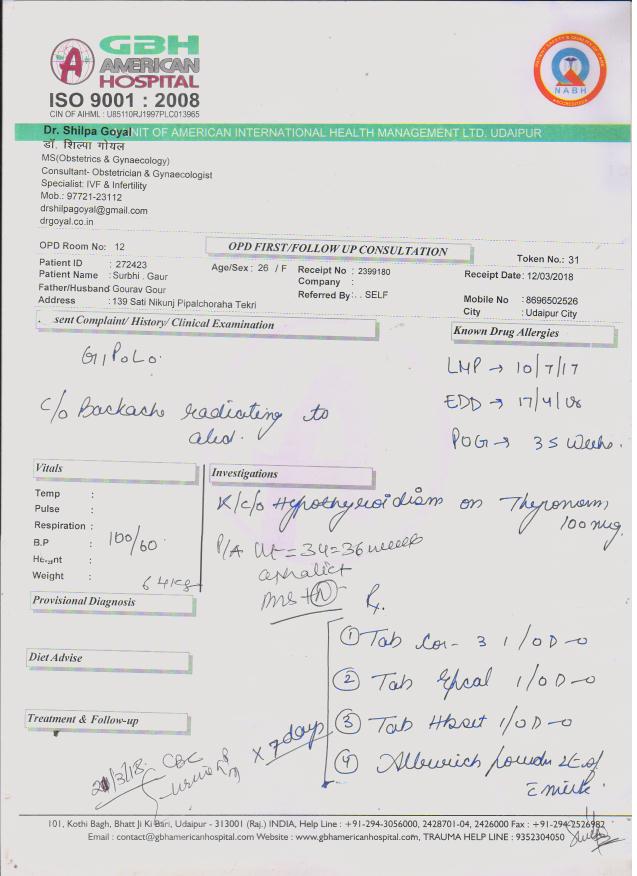 GBH
AMERICAN
HOSPITAL
ISO 9001 : 2008
CIN OF AIHML : U85110RJ1997PLC013965
NABH
Dr. Shilpa Goyal NIT OF AMERICAN INTERNATIONAL HEALTH MANAGEMENT LTD. UDAIPUR
डॉ. शिल्पा गोयल
MS(Obstetrics & Gynaecology)
Consultant- Obstetrician & Gynaecologist
Specialist: IVF & Infertility
Mob.: 97721-23112
drshilpagoyal@gmail.com
drgoyal.co.in
OPD Room No: 12
OPD FIRST/FOLLOW UP CONSULTATION
Token No.: 31
Patient ID : 272423
Age/Sex : 26 / F
Receipt No : 2399180
Receipt Date: 12/03/2018
Patient Name : Surbhi . Gaur
Company :
Father/Husband Gourav Gour
Referred By : . . SELF
Mobile No : 8696502526
Address : 139 Sati Nikunj Pipalchoraha Tekri
City : Udaipur City
sent Complaint/ History/ Clinical Examination
Known Drug Allergies
G1P0L0
LMP → 10/7/17
C/o Backache radiating to
abd.
EDD → 17/4/18
POG → 35 weeks.
Vitals
Investigations
Temp :
Pulse :
Respiration :
B.P : 100/60
Weight : 64kg
K/c/o Hypothyroidism on Thyronorm
100 mcg
P/A Ut = 34-36 weeks
cephalic
FMS + N
Rx.
Provisional Diagnosis
Diet Advise
Treatment & Follow-up
① Tab Cor-3 1/OD
② Tab 1/OD
③ Tab 1/OD
④ powder
milk
x 7 days
21/3/18. CBC
urine
101, Kothi Bagh, Bhatt Ji Ki Bari, Udaipur - 313001 (Raj.) INDIA, Help Line : +91-294-3056000, 2428701-04, 2426000 Fax : +91-294-2526982
Email : contact@gbhamericanhospital.com Website : www.gbhamericanhospital.com, TRAUMA HELP LINE : 9352304050